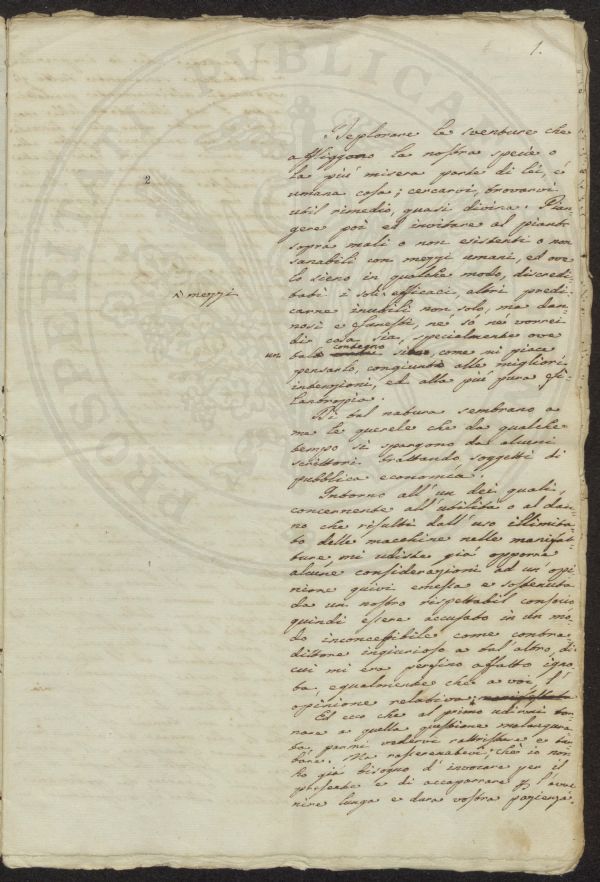 1.
Deplorare le sventure che
affliggono la nostra specie o
la più misera parte di lei, è
umana cosa; cercarvi, trovarvi
util rimedio, quasi divina. Pian-
gere poi ed invitare al pianto
sopra mali o non esistenti o non
sanabili con mezzi umani, ed ove
lo sieno in qualche modo, discredi-
tarti i soli efficaci, altri predi-
carne inutili non solo, ma dan-
nosi e funesti, nè so nè vorrei
dir cosa sia, specialmente ove
un tale contegno sia, come mi piace
pensarlo, congiunto alle migliori
intenzioni, ed alla più pura fi-
lantropia.
Di tal natura sembrano a
me le querele che da qualche
tempo si spargono da alcuni
scrittori trattando soggetti di
pubblica economia.
Intorno all'un dei quali,
concernente all'utilità o al dan-
no che risulti dall'uso illimita-
to delle macchine nelle manifat-
ture mi udiste già opporre
alcune considerazioni ad un'opi-
nione quivi emessa e sostenuta
da un nostro rispettabil consocio
quindi essere accusato in un mo-
do inconcepibile come contra-
dittore ingiurioso a tal'altro, di
cui mi era persino affatto igno-
ta, egualmente che a voi, l'
opinione relativa.
Ed ecco che al primo udirmi tor-
nare a quella questione malaugura-
ta, parmi vedervi rattristare e tur-
bare. Ma rasserenatevi, chè io non
ho già bisogno d'invocare per il
presente e di accaparrare p. l'avve-
nire lunga e dura vostra pazienza.
2
mezzi